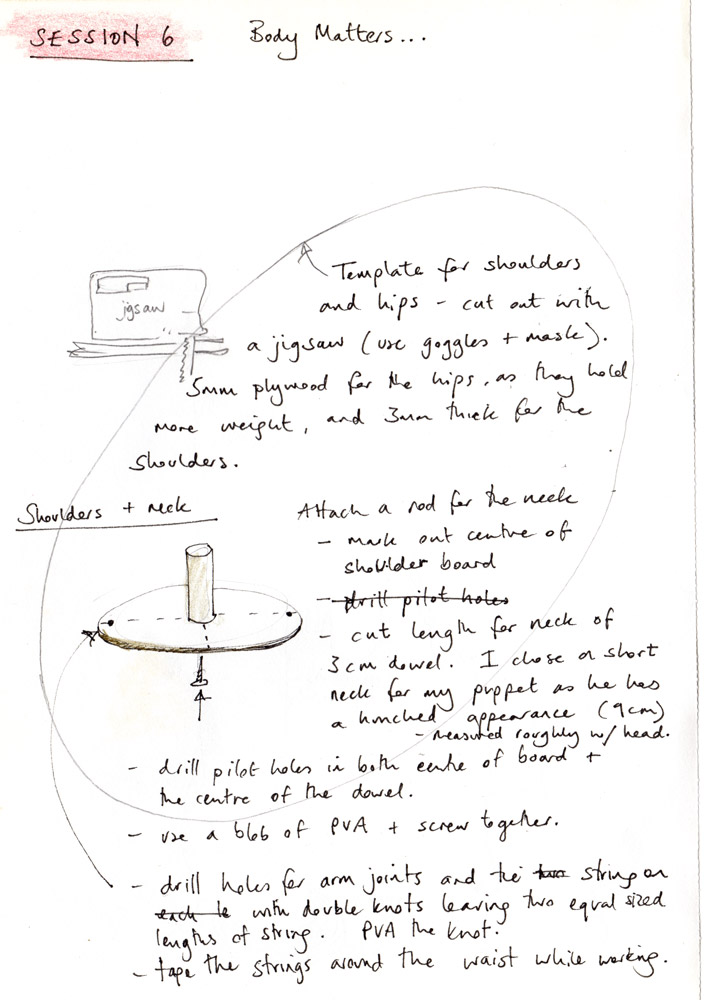 SESSION 6
Body Matters...
Template for shoulders
and hips - cut out with
a jigsaw (use goggles + mask).
jigsaw
5mm plywood for the hips, as they hold
more weight, and 3mm thick for the
shoulders.
Shoulders + neck
Attach a rod for the neck
- mark out centre of
shoulder board
- drill pilot holes
- cut length for neck of
3cm dowel. I chose a short
neck for my puppet as he has
a hunched appearance (9cm)
- measured roughly w/ head.
- drill pilot holes in both centre of board +
the centre of the dowel.
- use a blob of PVA + screw together.
- drill holes for arm joints and tie two string on
each with double knots leaving two equal sized
lengths of string. PVA the knot.
- tape the strings around the waist while working.